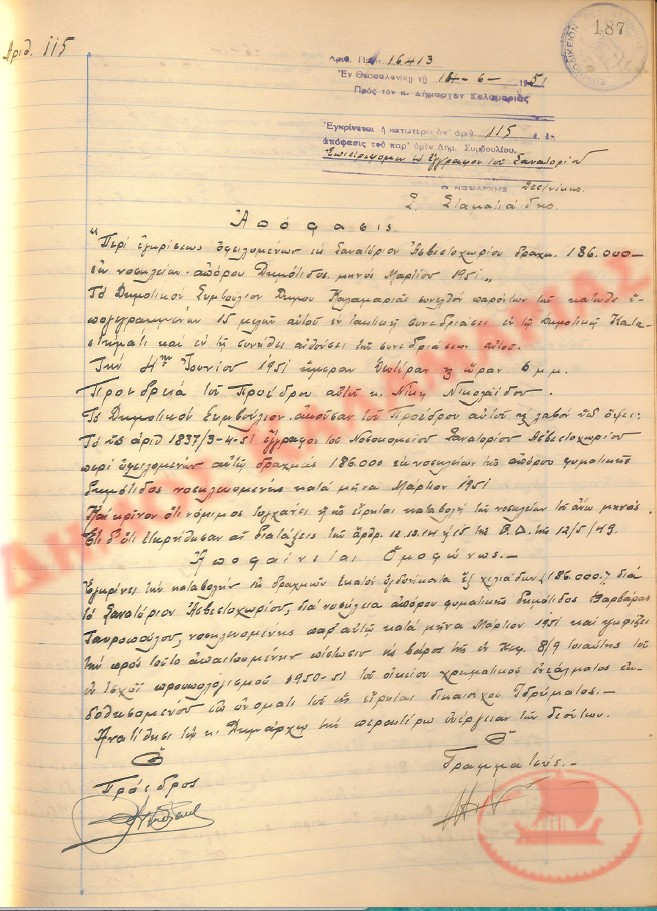 Αριθ. 115
187
Αριθ. Πρωτ. 16413
Ἐν Θεσσαλονίκῃ τῇ 14-6-1951
Πρὸς τὸν κ. Δήμαρχον Καλαμαριᾶς
Ἐγκρίνεται ἡ κατωτέρω ὑπ' ἀριθ. 115 ἐ. ἔ.
ἀπόφασις τοῦ παρ' ὑμῖν Δημ. Συμβουλίου.
Ἐπιστρέφομεν τὸ ἔγγραφον τοῦ Σανατορίου
Ο ΝΟΜΑΡΧΗΣ Θεσ/νίκης
Σ. 
Ἀπόφασις
"Περὶ ἐγκρίσεως ὀφειλομένων εἰς Σανατόριον Ἀσβεστοχωρίου δραχ. 186.000-
ἐκ νοσηλείων ἀπόρου δημότιδος μηνὸς Μαρτίου 1951"
Τὸ Δημοτικὸν Συμβούλιον Δήμου Καλαμαριᾶς συνελθὸν παρόντων τῶν κάτωθι ὑ-
πογεγραμμένων 15 μελῶν αὐτοῦ ἐν τακτικῇ συνεδριάσει ἐν τῷ Δημοτικῷ Κατα-
στήματι καὶ ἐν τῇ συνήθει αἰθούσῃ τῶν συνεδριάσεων αὐτοῦ.
Τὴν 4ην Ἰουνίου 1951 ἡμέραν Δευτέραν καὶ ὥραν 6 μ.μ.
Προεδρείᾳ τοῦ Προέδρου αὐτοῦ κ. Νίκη Νικολαΐδου.
Τὸ Δημοτικὸν Συμβούλιον ἀκοῦσαν τοῦ Προέδρου αὐτοῦ καὶ λαβὸν ὑπ' ὄψει:
Τὸ ὑπ' ἀριθ 1837/3-4-51 ἔγγραφον τοῦ Νοσοκομείου Σανατορίου Ἀσβεστοχωρίου
περὶ ὀφειλομένων αὐτῷ δραχμῶν 186.000 ἐκ νοσηλείων τῆς ἀπόρου φυματικῆς
δημότιδος νοσηλευομένης κατὰ μῆνα Μάρτιον 1951
Καὶ κρῖνον ὅτι νόμιμος τυγχάνει ἡ ὡς εἴρηται καταβολὴ τῶν νοσηλείων τοῦ ἄνω μηνός.
Ἔτι δ' ὅτι ἐτηρήθησαν αἱ διατάξεις τῶν ἄρθρ. 12.13.14 καὶ 15 τοῦ Β.Δ. τῆς 12/5/49.
Ἀποφαίνεται Ὁμοφώνως.-
Ἐγκρίνει τὴν καταβολὴν ἐκ δραχμῶν ἑκατὸν ὀγδοήκοντα ἓξ χιλιάδων (186.000) διὰ
τὸ Σανατόριον Ἀσβεστοχωρίου, διὰ νοσήλεια ἀπόρου φυματικῆς δημότιδος Βαρβάρας
Ταυροπούλου, νοσηλευομένης παρ' αὐτῷ κατὰ μῆνα Μάρτιον 1951 καὶ ψηφίζει
τὴν πρὸς τοῦτο ἀπαιτουμένην πίστωσιν εἰς βάρος τῆς ἐν Κεφ. 8/9 τοιαύτης τοῦ
ἐν ἰσχύϊ προϋπολογισμοῦ 1950-51 τοῦ οἰκείου χρηματικοῦ ἐντάλματος ἐκ-
δοθησομένου ἐπ' ὀνόματι τοῦ ὡς εἴρηται δικαιούχου Ἱδρύματος.-
Ἀνατίθησι τῷ κ. Δημάρχῳ τὴν περαιτέρω ἐνέργειαν τῶν δεόντων.
Ὁ
Πρόεδρος
Ὁ
Γραμματεύς.-